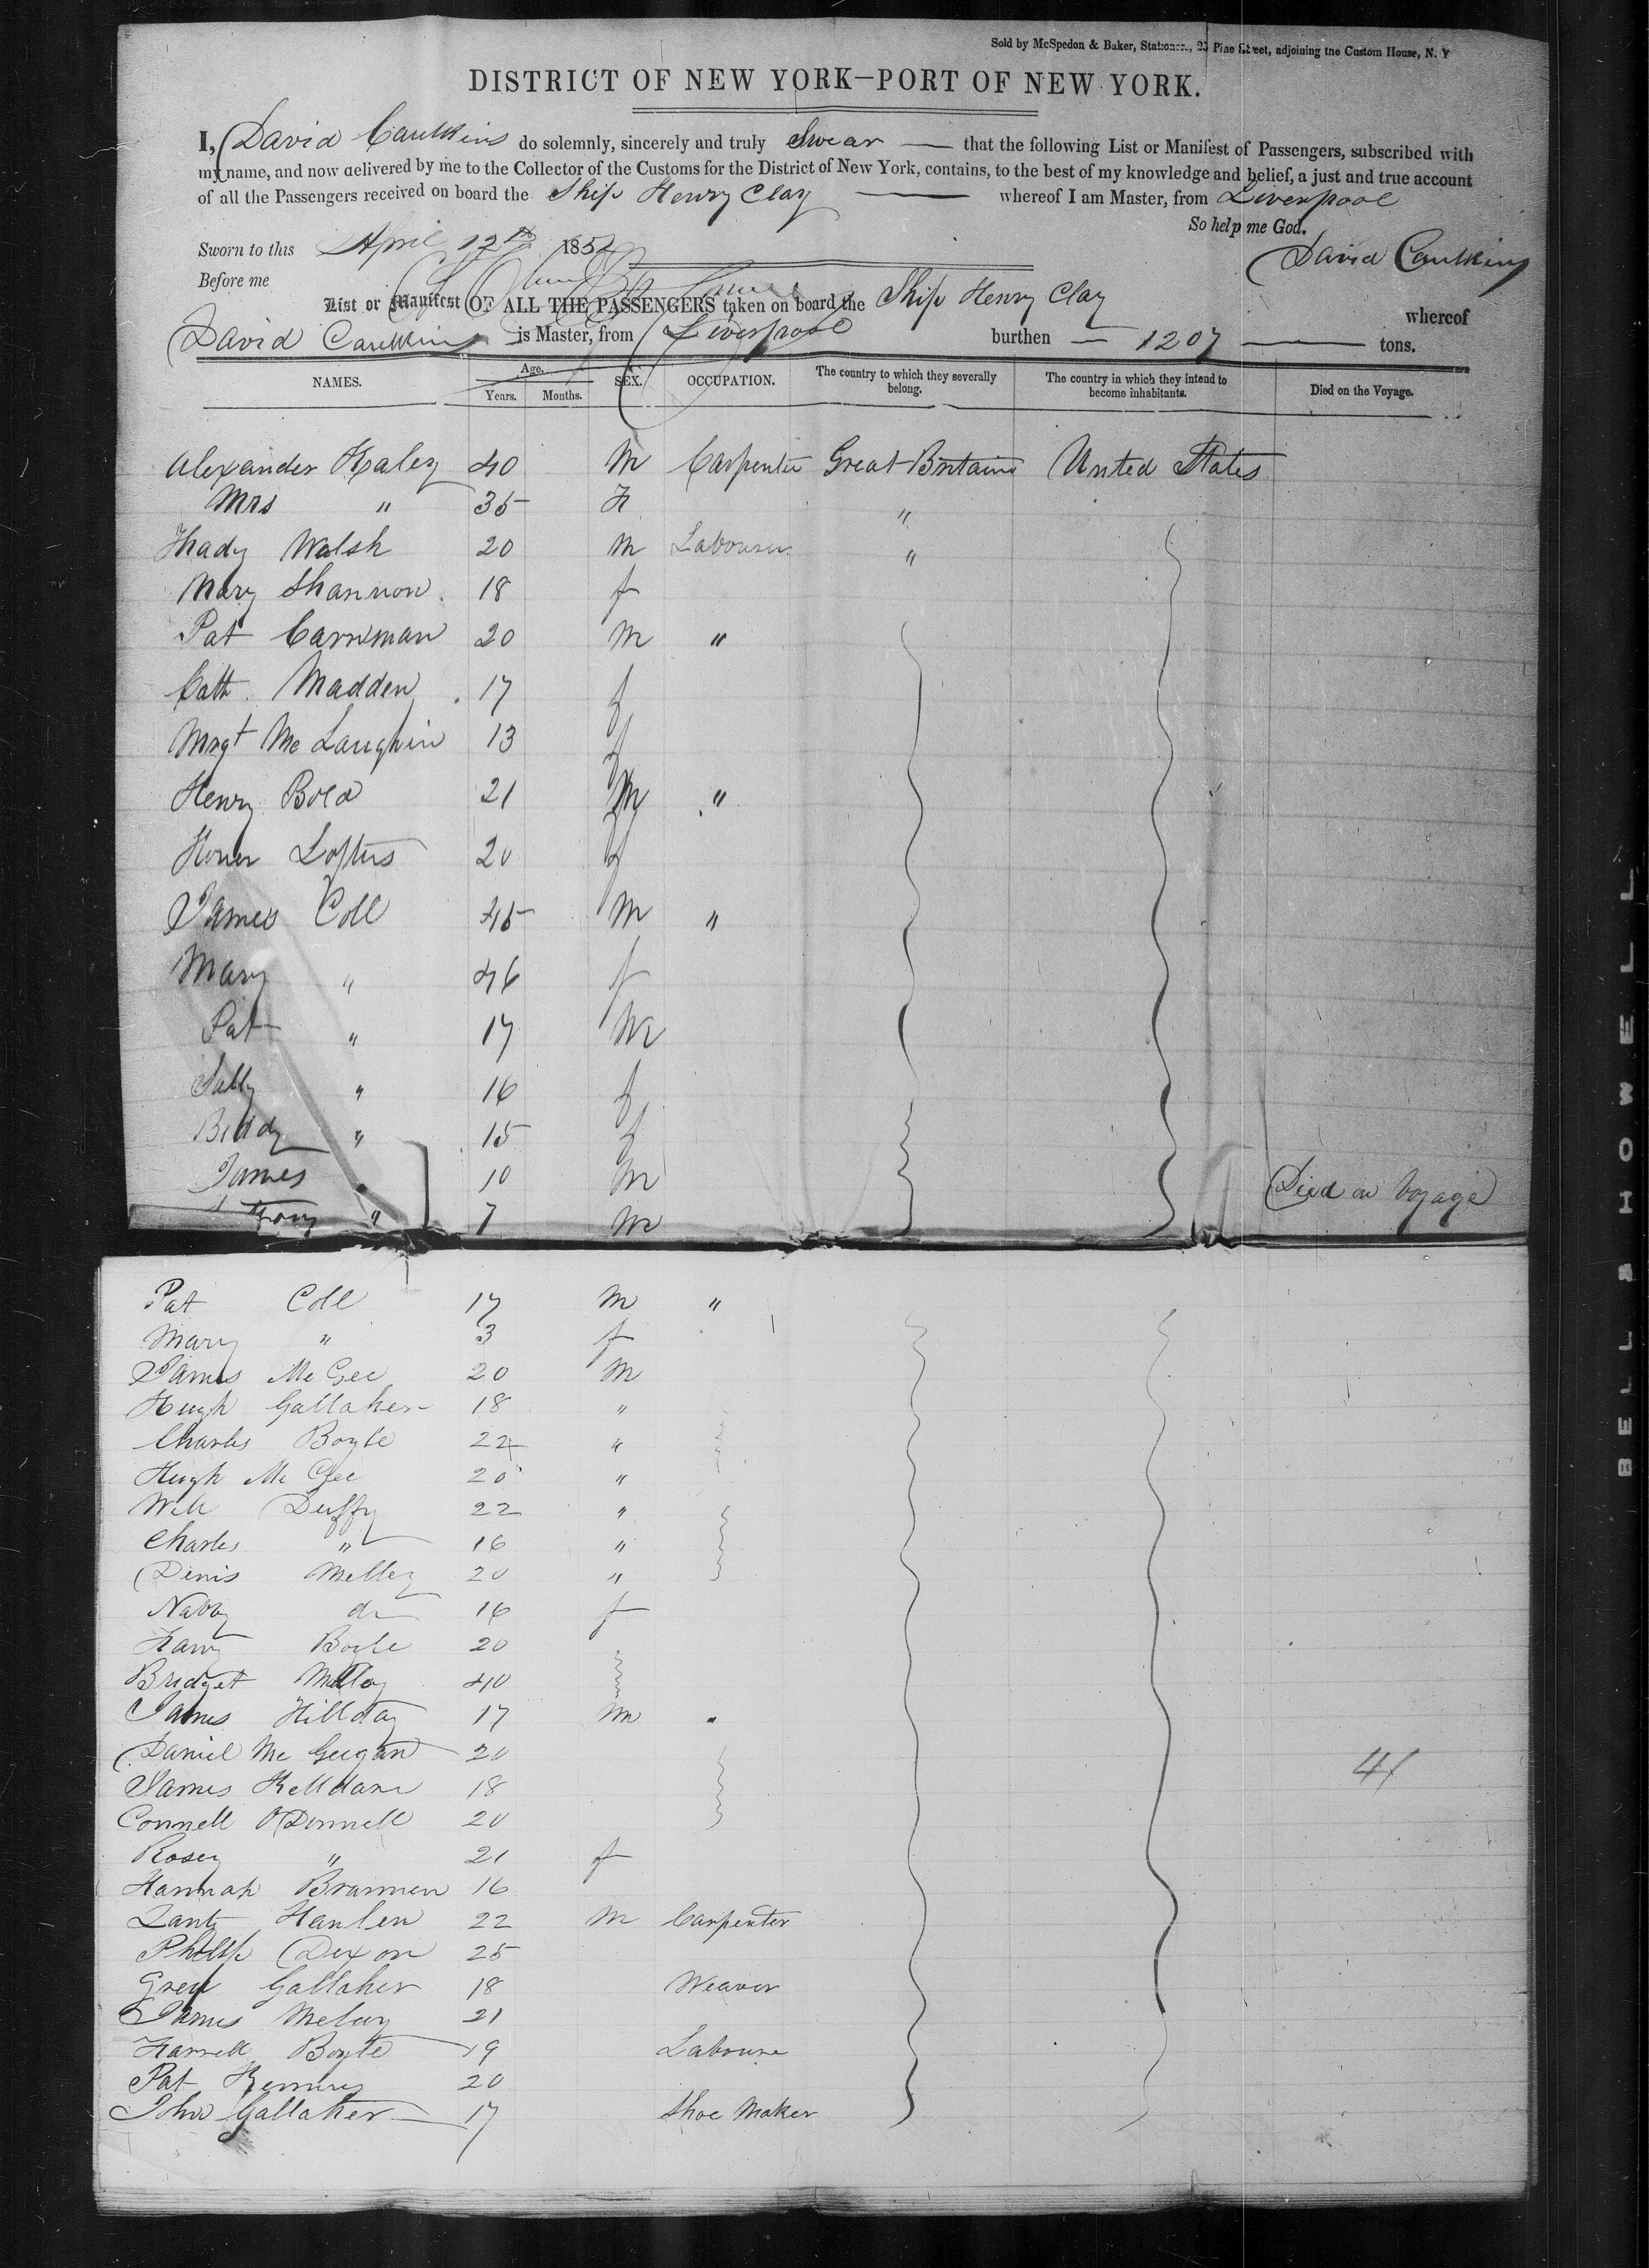 Sold by McSpedon & Baker, Stationers, 25 Pine Street, adjoining the Custom House, N. Y
DISTRICT OF NEW YORK—PORT OF NEW YORK.
I, David Caulkins do solemnly, sincerely and truly Swear — that the following List or Manifest of Passengers, subscribed with
my name, and now delivered by me to the Collector of the Customs for the District of New York, contains, to the best of my knowledge and belief, a just and true account
of all the Passengers received on board the Ship Henry Clay — whereof I am Master, from Liverpool
So help me God.
Sworn to this April 12th 1852 David Caulkins
Before me
List or Manifest OF ALL THE PASSENGERS taken on board the Ship Henry Clay whereof
David Caulkins is Master, from Liverpool burthen — 1207 — tons.
NAMES. Age. Years. Months. SEX. OCCUPATION. The country to which they severally belong. The country in which they intend to become inhabitants. Died on the Voyage.
Alexander Haley 40 M Carpenter Great Britain United States
Mrs " 35 F "
Thady Walsh 20 M Labourer "
Mary Shannon 18 f
Pat Carriman 20 M "
Cath Madden 17 f
Mrgt Mc Laughin 13 f
Henry Bold 21 M "
Honer Loftus 20 f
James Coll 45 M "
Mary " 46 f
Pat " 17 M
Sally " 16 f
Biddy " 15 f
James " 10 M Died on Voyage
" 7 M
Pat Coll 17 M "
Mary " 3 f
James Mc Gee 20 M
Hugh Gallaher 18 "
Charles Boyle 22 "
Hugh Mc Gee 20 "
Will Duffy 22 "
Charles " 16 "
Denis Melley 20 "
Nabby do 16 f
Boyle 20
Bridget Melloy 40
James Hillday 17 M "
Daniel Mc Geegan 20
James Kelldare 18
Connell O'Donnell 20
Rosey " 21 f
Hannah Brannen 16
Hanlen 22 M Carpenter
Phillip Dixon 25
Gallaher 18 Weaver
James Meloy 21
Farrell Boyle 19 Laboure
Pat 20
John Gallaher 17 Shoe Maker
41
BELL & HOWELL